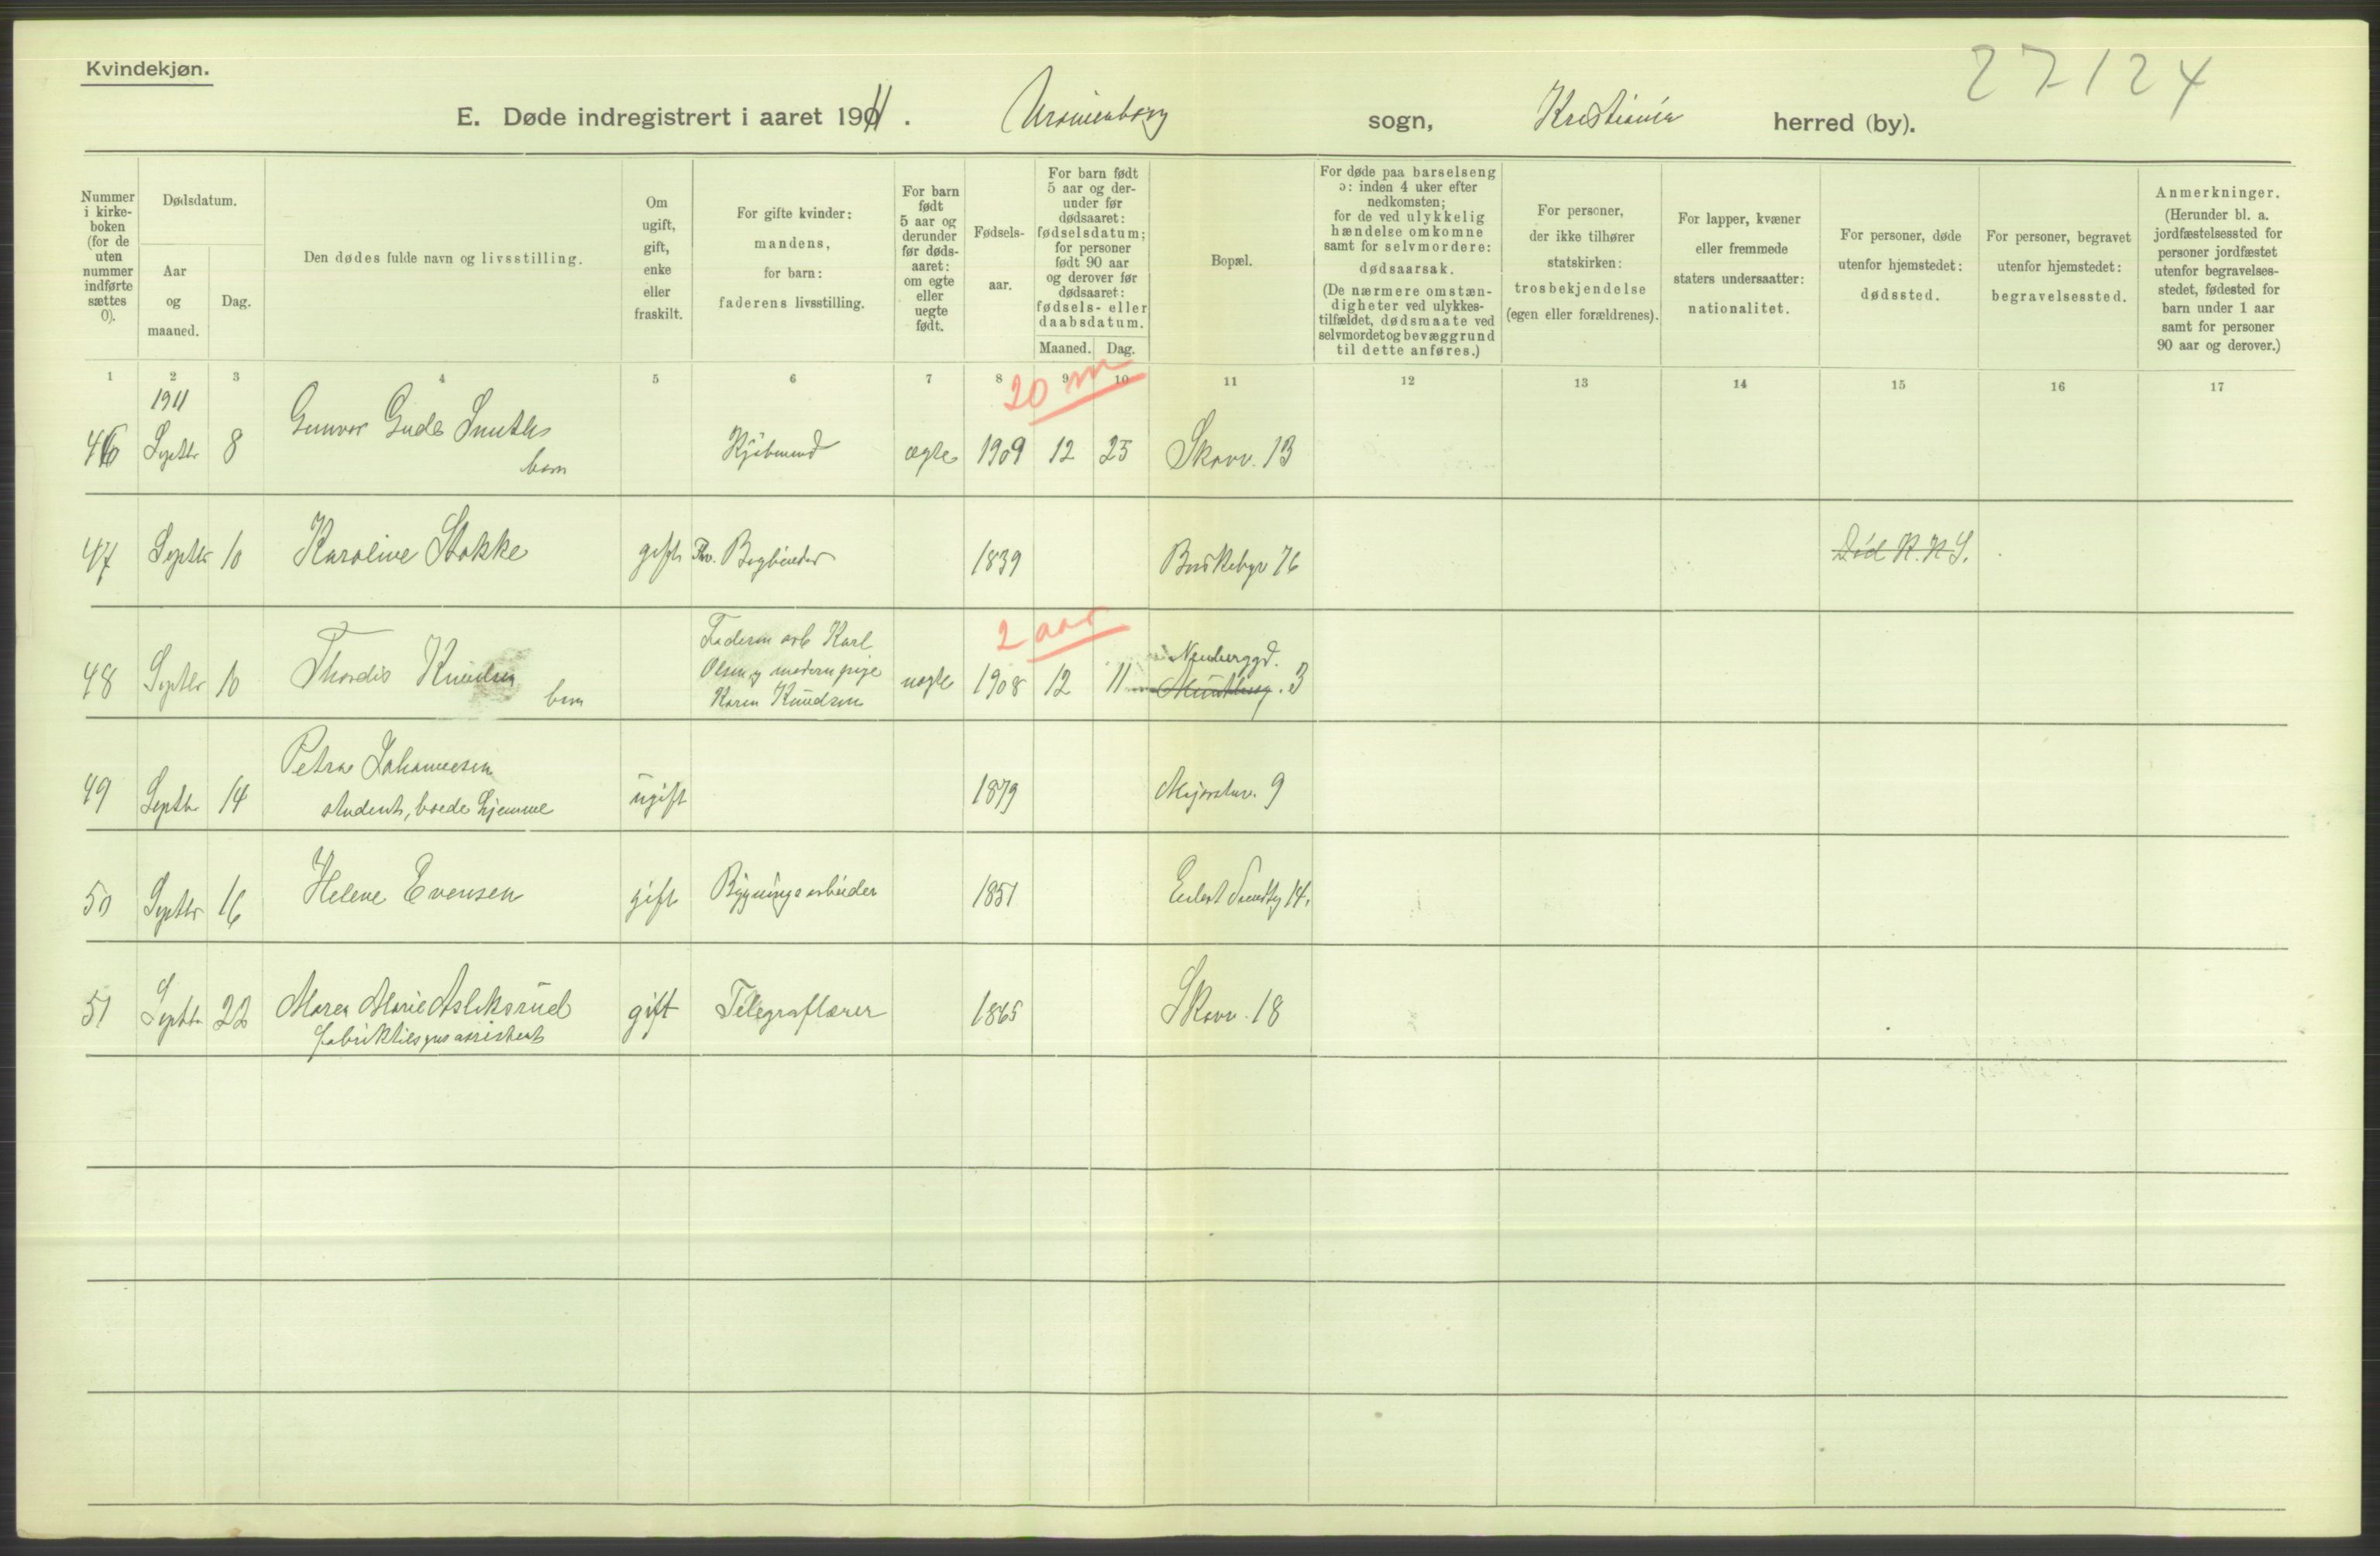 Kvindekjøn.
27124
E. Døde indregistrert i aaret 1911. Uranienborg sogn, Kristiania herred (by).
Nummer i kirke- boken (for de uten nummer indførte sættes 0).
Dødsdatum.
Aar og maaned.
Dag.
Den dødes fulde navn og livsstilling.
Om ugift, gift, enke eller fraskilt.
For gifte kvinder: mandens, for barn: faderens livsstilling.
For barn født 5 aar og derunder før døds- aaret: om egte eller uegte født.
Fødsels- aar.
For barn født 5 aar og der- under før dødsaaret: fødselsdatum; for personer født 90 aar og derover før dødsaaret: fødsels- eller daabsdatum.
Maaned. Dag.
Bopæl.
For døde paa barselseng ɔ: inden 4 uker efter nedkomsten; for de ved ulykkelig hændelse omkomne samt for selvmordere: dødsaarsak. (De nærmere omstæn- digheter ved ulykkes- tilfældet, dødsmaate ved selvmordet og bevæggrund til dette anføres.)
For personer, der ikke tilhører statskirken: trosbekjendelse (egen eller forældrenes).
For lapper, kvæner eller fremmede staters undersaatter: nationalitet.
For personer, døde utenfor hjemstedet: dødssted.
For personer, begravet utenfor hjemstedet: begravelsessted.
Anmerkninger. (Herunder bl. a. jordfæstelsessted for personer jordfæstet utenfor begravelses- stedet, fødested for barn under 1 aar samt for personer 90 aar og derover.)
1 2 3 4 5 6 7 8 9 10 11 12 13 14 15 16 17
1911
20 m
46 Septbr 8 Gunvor Gude Smith barn Kjøbmand ægte 1909 12 25 Skovv. 13
47 Septbr 10 Karoline Stokke gift Fhv. Bogbinder 1839 Briskebyv 76 Død R.H S.
2 aar
48 Septbr 10 Thordis Knudsen barn Faderen arb Karl Olsen og moderen pige Karen Knudsen uægte 1908 12 11 Neuberggd. 3
49 Septbr 14 Petra Johannesen student, boede hjemme ugift 1879 Majorstuv. 9
50 Septbr 16 Helene Evensen gift Bygningsarbeider 1851 Eilert Sundtsg 14.
51 Septbr 22 Maren Marie Asleksrud fabriktilsynsassistent gift Telegraflærer 1865 Skovv. 18